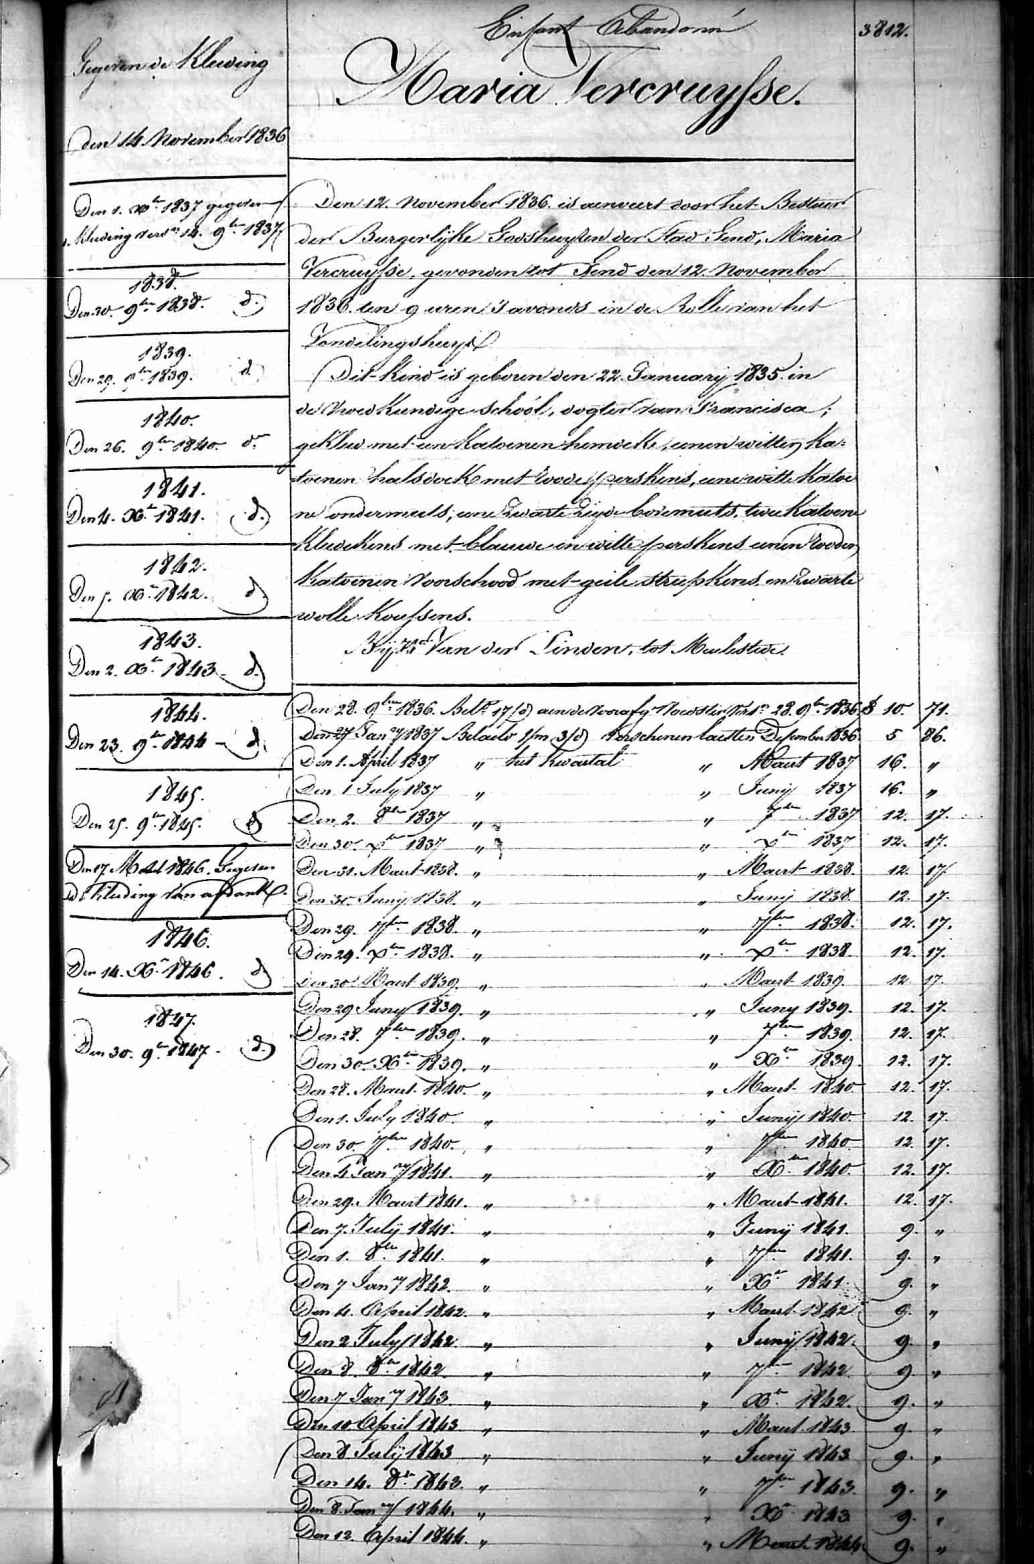 Enfant Abandonné
3812.
Maria Vercruysse.
Gegeven de Kleeding
den 14 November 1836
Den 1. Xbre 1837 gegeven
kleeding vers. 14. 9bre 1837
1838.
Den 30. 9bre 1838. d.
1839.
Den 29. 9bre 1839. d
1840.
Den 26. 9bre 1840 do
1841.
Den 4. Xbre 1841. d.
1842.
Den 5. Xbre 1842. d
1843.
Den 2. Xbre 1843 d.
1844.
Den 23. 9bre 1844 d.
1845.
Den 25. 9bre 1845. d
Den 17 Maert 1846. Gegeven
de kleeding van
1846.
Den 14. Xbre 1846. d
1847.
Den 30. 9bre 1847. d.
Den 12. November 1836. is aenveert door het Bestuer
der Burgerlyke Godshuyzen der Stad Gend, Maria
Vercruysse, gevonden tot Gend den 12. November
1836. ten 9 uren 's avonds in de Rolle van het
Vondelingshuys
Dit kind is geboren den 22. January 1835. in
de vroedkundige school, dogter van Francisca,
gekleed met een katoenen hemdeke, eenen witten ka-
toenen halsdoek met roode perskens, eene witte katoe
ne ondermuts, eene zwarte zyde bovemuts, twee katoene
kleedekens met blauwe en witte perskens eenen rooden
katoenen voorschood met geile streepkens en zwarte
wolle koussens.
By Van der Linden, tot Meulestede
Den 28. 9bre 1836. Belt. 17/d) aen de voorafg. Voedster Vers. 28. 9bre 1836 8 10. 71.
Den 27 Jany 1837 Betaeld 1/m 3/d) verschenen laetsten December 1836 5 86.
Den 1. April 1837 " het kwartael " Maert 1837 16. "
Den 1 July 1837 " " Juny 1837 16. "
Den 2. 8bre 1837 " " 7bre 1837 12. 17.
Den 30. Xbre 1837 " " Xbre 1837 12. 17.
Den 31. Maert 1838. " " Maert 1838. 12. 17.
Den 30. Juny 1838. " " Juny 1838. 12. 17.
Den 29. 7bre 1838. " " 7bre 1838. 12. 17.
Den 29. Xbre 1838. " " Xbre 1838. 12. 17.
Den 30 Maert 1839. " " Maert 1839. 12 17.
Den 29 Juny 1839. " " Juny 1839. 12. 17.
Den 28. 7bre 1839. " " 7bre 1839. 12. 17.
Den 30. Xbre 1839. " " Xbre 1839. 12. 17.
Den 28. Maert 1840. " " Maert 1840 12. 17.
Den 1. July 1840. " " Juny 1840. 12. 17.
Den 30. 7bre 1840. " " 7bre 1840 12. 17.
Den 4 Jany 1841. " " Xbre 1840 12. 17.
Den 29. Maert 1841. " " Maert 1841. 12. 17.
Den 7. July 1841. " " Juny 1841. 9. "
Den 1. 8bre 1841. " " 7bre 1841. 9. "
Den 7 Jany 1842. " " Xbre 1841 9. "
Den 4. April 1842. " " Maert 1842 9. "
Den 2 July 1842. " " Juny 1842. 9. "
Den 8. 8bre 1842. " " 7bre 1842 9. "
Den 7 Jany 1843. " " Xbre 1842. 9. "
Den 10 April 1843 " " Maert 1843 9. "
Den 8 July 1843 " " Juny 1843 9. "
Den 14. 8bre 1843. " " 7bre 1843. 9. "
Den 8. Jany 1844. " " Xbre 1843 9. "
Den 12. April 1844. " " Maert 1844 9. "